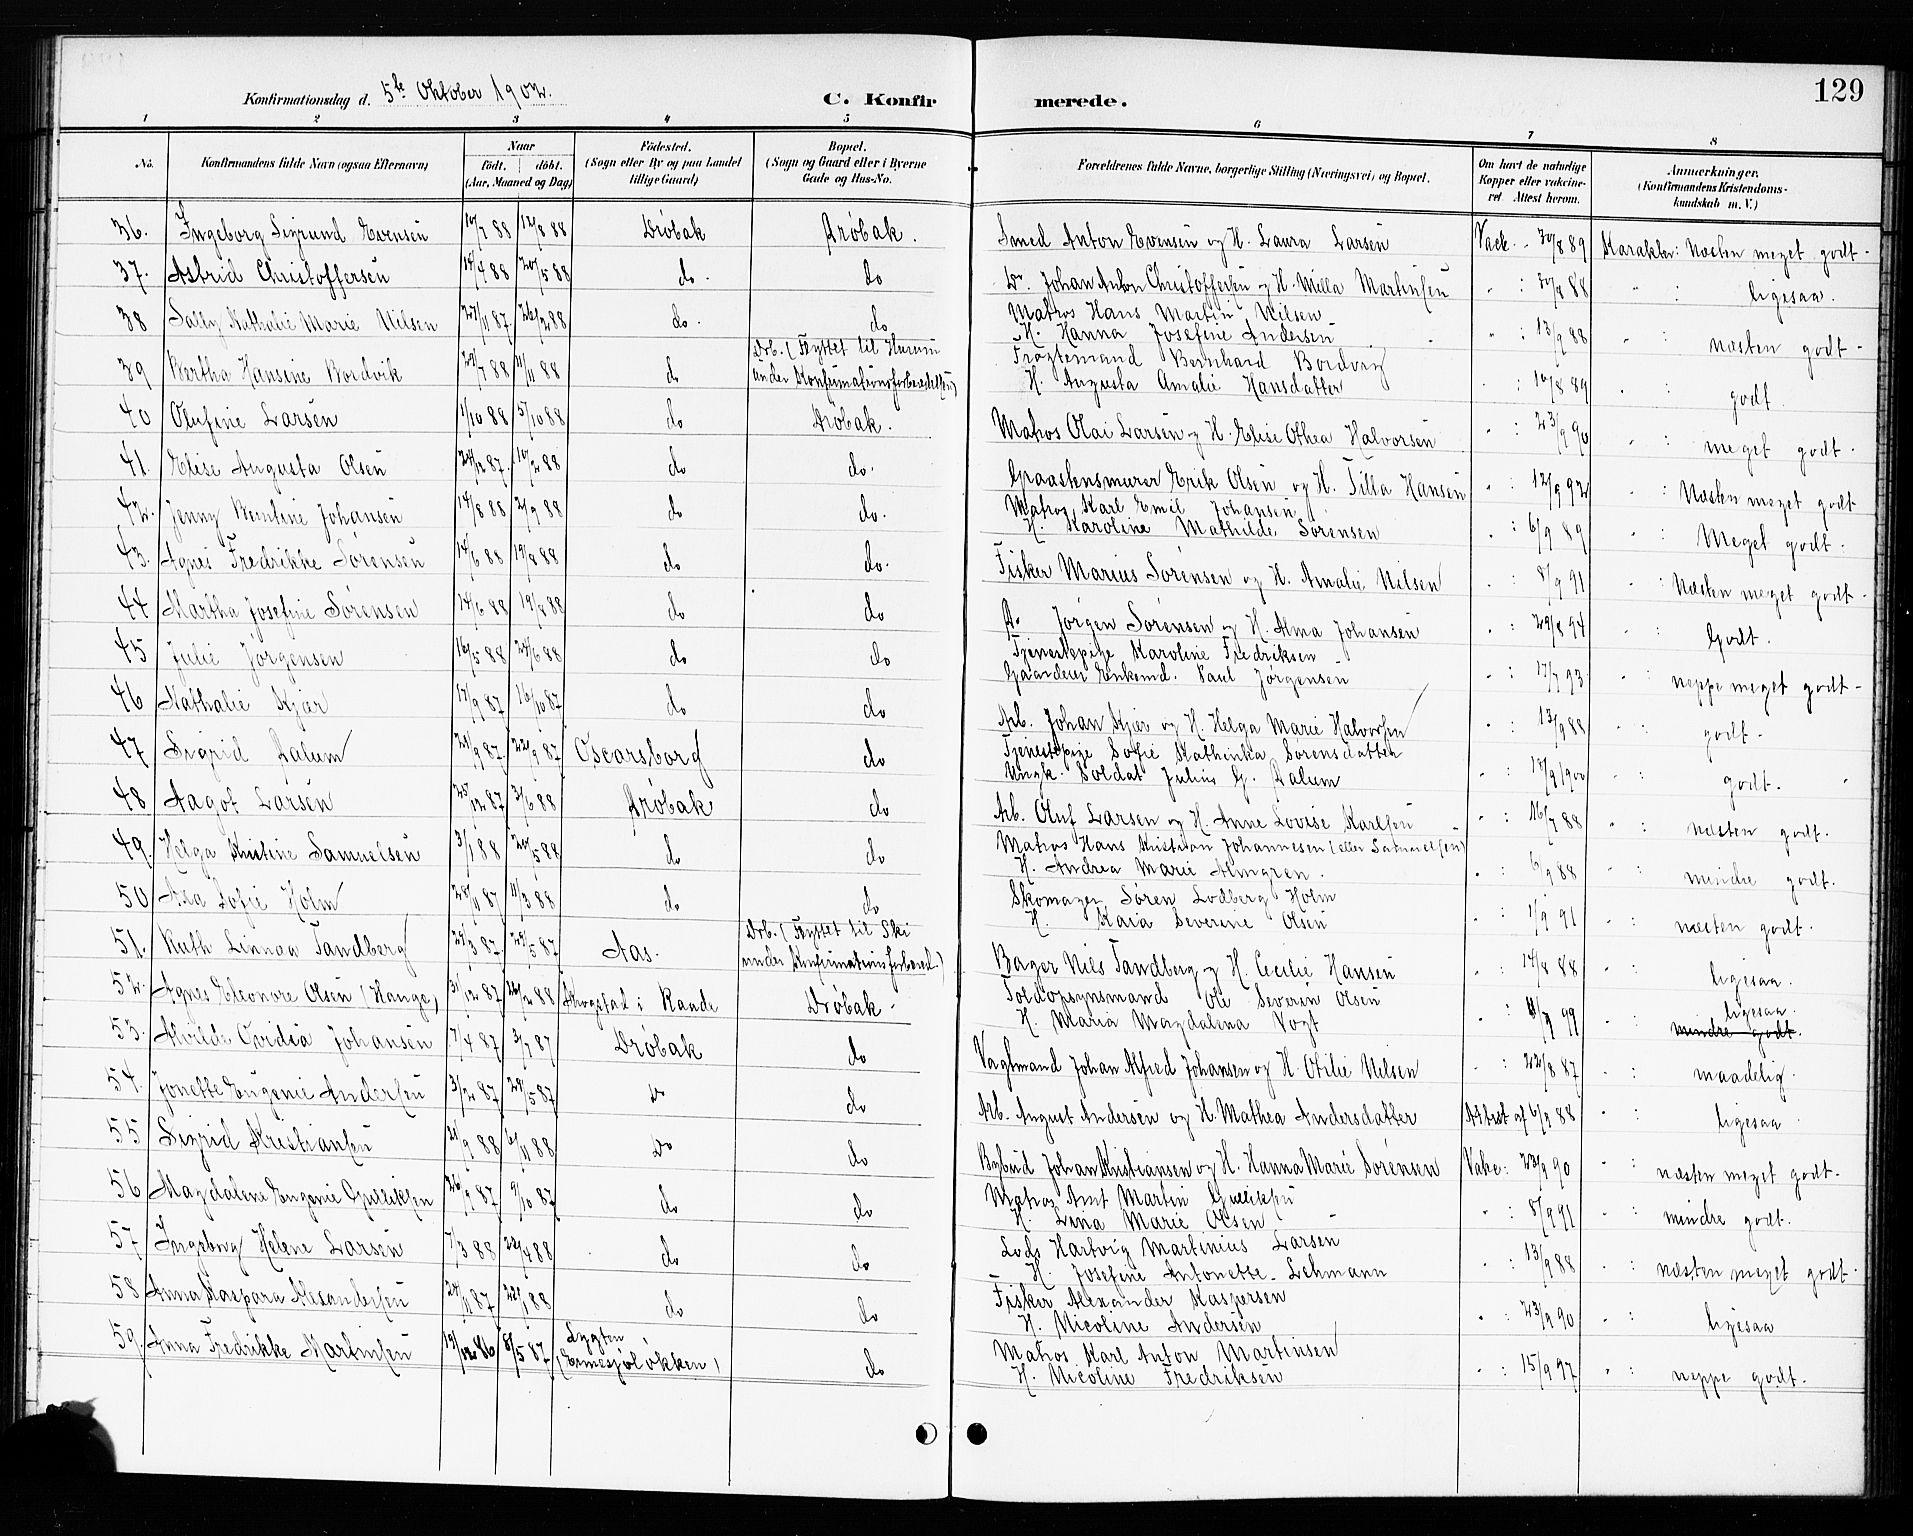 129
Konfirmationsdag d. 5te Oktober 1902.
C. Konfirmerede.
1 2 3 4 5 6 7 8
No. Konfirmandens fulde Navn (ogsaa Efternavn) Naar født. døbt. (Aar, Maaned og Dag) Fødested. (Sogn eller By og paa Landet tillige Gaard) Bopæl. (Sogn og Gaard eller i Byerne Gade og Hus-No. Forældrenes fulde Navne, borgerlige Stilling (Næringsvei) og Bopæl. Om havt de naturlige Kopper eller vaksineret Attest herom. Anmærkninger. (Konfirmandens Kristendomskundskab m. V.)
36. Ingeborg Sigrund Evensen 10/7 88 12/8 88 Drøbak Drøbak. Smed Anton Evensen og H. Laura Larsen Vack. 30/8 89 Karakter: Næsten meget godt.
37. Astrid Christoffersen 14/4 88 20/5 88 do. do Do. Johan Anton Christoffersen og H. Milla Martinsen " : 30/8 88 " : ligesaa.
38 Sally Nathalie Marie Nilsen 27/11 87 26/2 88 do. do Matros Hans Martin Nilsen H. Hanna Josefine Andersen " : 13/9 88 næsten godt.
39 Bertha Hansine Bordvik 29/7 88 11/11 88 do Drb. (Flyttet til Hurum under Konfirmationsforberedelsen) Fragtemand Bernhard Bordvig H. Augusta Amalie Hansdatter " : 10/8 89 " : godt.
40 Olufine Larsen 1/10 88 5/10 88 do Drøbak. Matros Olai Larsen og H. Elise Othea Halvorsen " : 23/9 90 " : meget godt.
41. Elise Augusta Olsen 24/12 87. 10/2 88 do do. Graastensmurer Erik Olsen og H. Tilla Hansen " : 12/9 92 " : Næsten meget godt
42. Jenny Berntine Johansen 14/8 88 2/9 88 do do. Matros Karl Emil Johansen H. Karoline Mathilde Sørensen " : 6/9 89 " : Meget godt.
43. Agnes Fredrikke Sørensen 14/6 88 19/8 88 do do. Fisker Marius Sørensen og H. Amalie Nilsen " : 8/9 91 " : Næsten meget godt.
44 Martha Josefine Sørensen 24/6 88 19/8 88 do do Do Jørgen Sørensen og H. Alma Johansen " : 29/8 94 " : Godt.
45 Julie Jørgensen 16/5 88 24/6 88 do do Tjenestepige Karoline Fredriksen Gaardeier Enkemd. Paul Jørgensen " : 17/7 93 " : neppe meget godt.
46 Nathalie Kjær 17/9 87 16/10 87 do do Arb. Johan Kjær og H. Helga Marie Halvorsen " : 13/9 88 " : godt.
47 Sigrid Dalum 21/9 87. 22/9 87 Oscarsborg do Tjenestepige Sofie Kathinka Sørensdatter Ungk. Soldat Julius G. Dalum " : 18/9 1900 " : godt.
48 Aagot Larsen 25/12 87 3/6 88 Drøbak do Arb. Oluf Larsen og H. Anne Lovise Karlsen " : 16/7 88 " : næsten godt.
49. Helga Kristine Samuelsen 3/1 88 20/5 88 do do Matros Hans Kristian Johannesen (eller Samuelsen) H. Andrea Marie Almgren. " : 6/9 88 " : mindre godt.
50 Axa Sofie Holm 28/11 87 11/3 88 do do Skomager Søren Lodberg Holm H. Kaia Severine Olsen " : 1/9 91 " : næsten godt.
51. Ruth Linnea Tandberg 29/3 87. 29/5 87 Aas. Drb. (Flyttet til Ski under Konfirmationsforbered.) Bager Nils Tandberg og H. Cecilie Hansen " : 14/8 88 " : ligesaa.
52. Agnes Eleonore Olsen (Hauge) 31/12 87 26/2 88 Krogstad i Raade Drøbak. Toldopsynsmand Ole Severin Olsen H. Maria Magdalena Vogt " : 11/7 99 " : ligesaa. mindre godt.
53. Alvilde Ovidia Johansen 7/4 87 3/7 87 Drøbak do Vagtmand Johan Alfred Johansen og H. Otilie Nilsen " : 22/8 87 " : maadelig.
54. Jonette Eugenie Andersen 3/2 87 29/5 87 Do do Arb. August Andersen og H. Mathea Andersdatter Attest af 6/9 88 " : ligesaa
55 Sigrid Kristiansen 21/9 88 6/11 88 Do do Bybud Johan Kristiansen og H. Hanna Marie Sørensen Vakc: 23/9 90 " : næsten meget godt.
56 Magdalene Eugenie Gulliksen 26/9 87 9/10 87 do do Matros Amt Martin Gulliksen H. Lena Marie Olsen " : 8/9 91 " : mindre godt.
57 Ingeborg Helene Larsen 7/3 88 22/4 88 do do Lods Hartvig Martinius Larsen H. Josefine Antonette Lehmann " : 13/9 88 " : næsten meget godt.
58 Anna Kaspara Alexandersen 24/11 87 22/1 88 do do Fisker Alexander Kaspersen H. Nicoline Andersen " : 23/9 90 " : ligesaa
59. Anna Fredrikke Martinsen 19/12 86 8/5 87 do Matros Karl Anton Martinsen H. Nicoline Fredriksen " : 15/9 97 " : neppe godt.